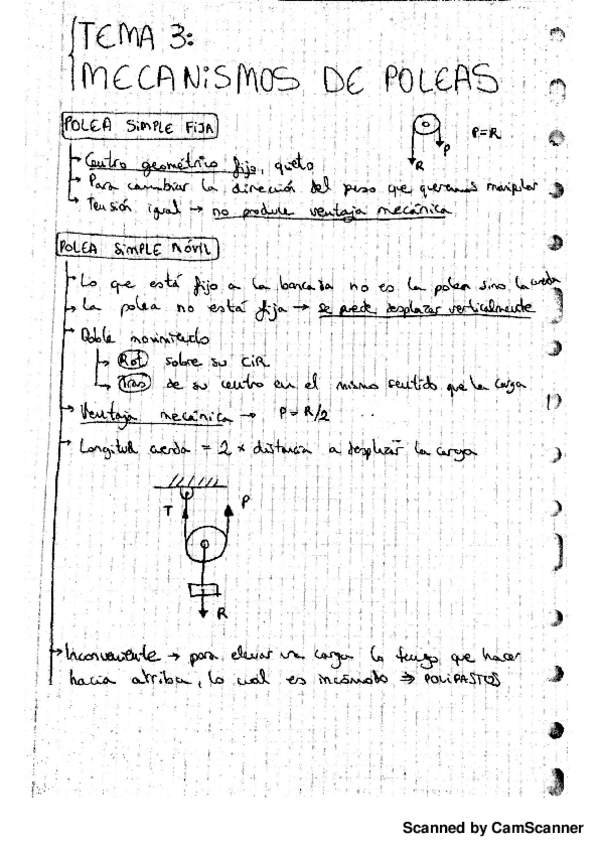 TEMA 3:
MECANISMOS DE POLEAS
POLEA SIMPLE FIJA
P=R
P
R
Centro geométrico fijo, quieto
Para cambiar la dirección del peso que queremos manipular
Tensión igual → no produce ventaja mecánica
POLEA SIMPLE MÓVIL
Lo que está fijo a la bancada no es la polea sino la cuerda
La polea no está fija → se puede desplazar verticalmente
Doble movimiento
Rot sobre su CIR
Tras de su centro en el mismo sentido que la carga
Ventaja mecánica → P=R/2
Longitud cuerda = 2 * distancia a desplazar la carga
T
P
R
Inconveniente → para elevar una carga lo tengo que hacer
hacia arriba, lo cual es incómodo ⇒ POLIPASTOS
Scanned by CamScanner